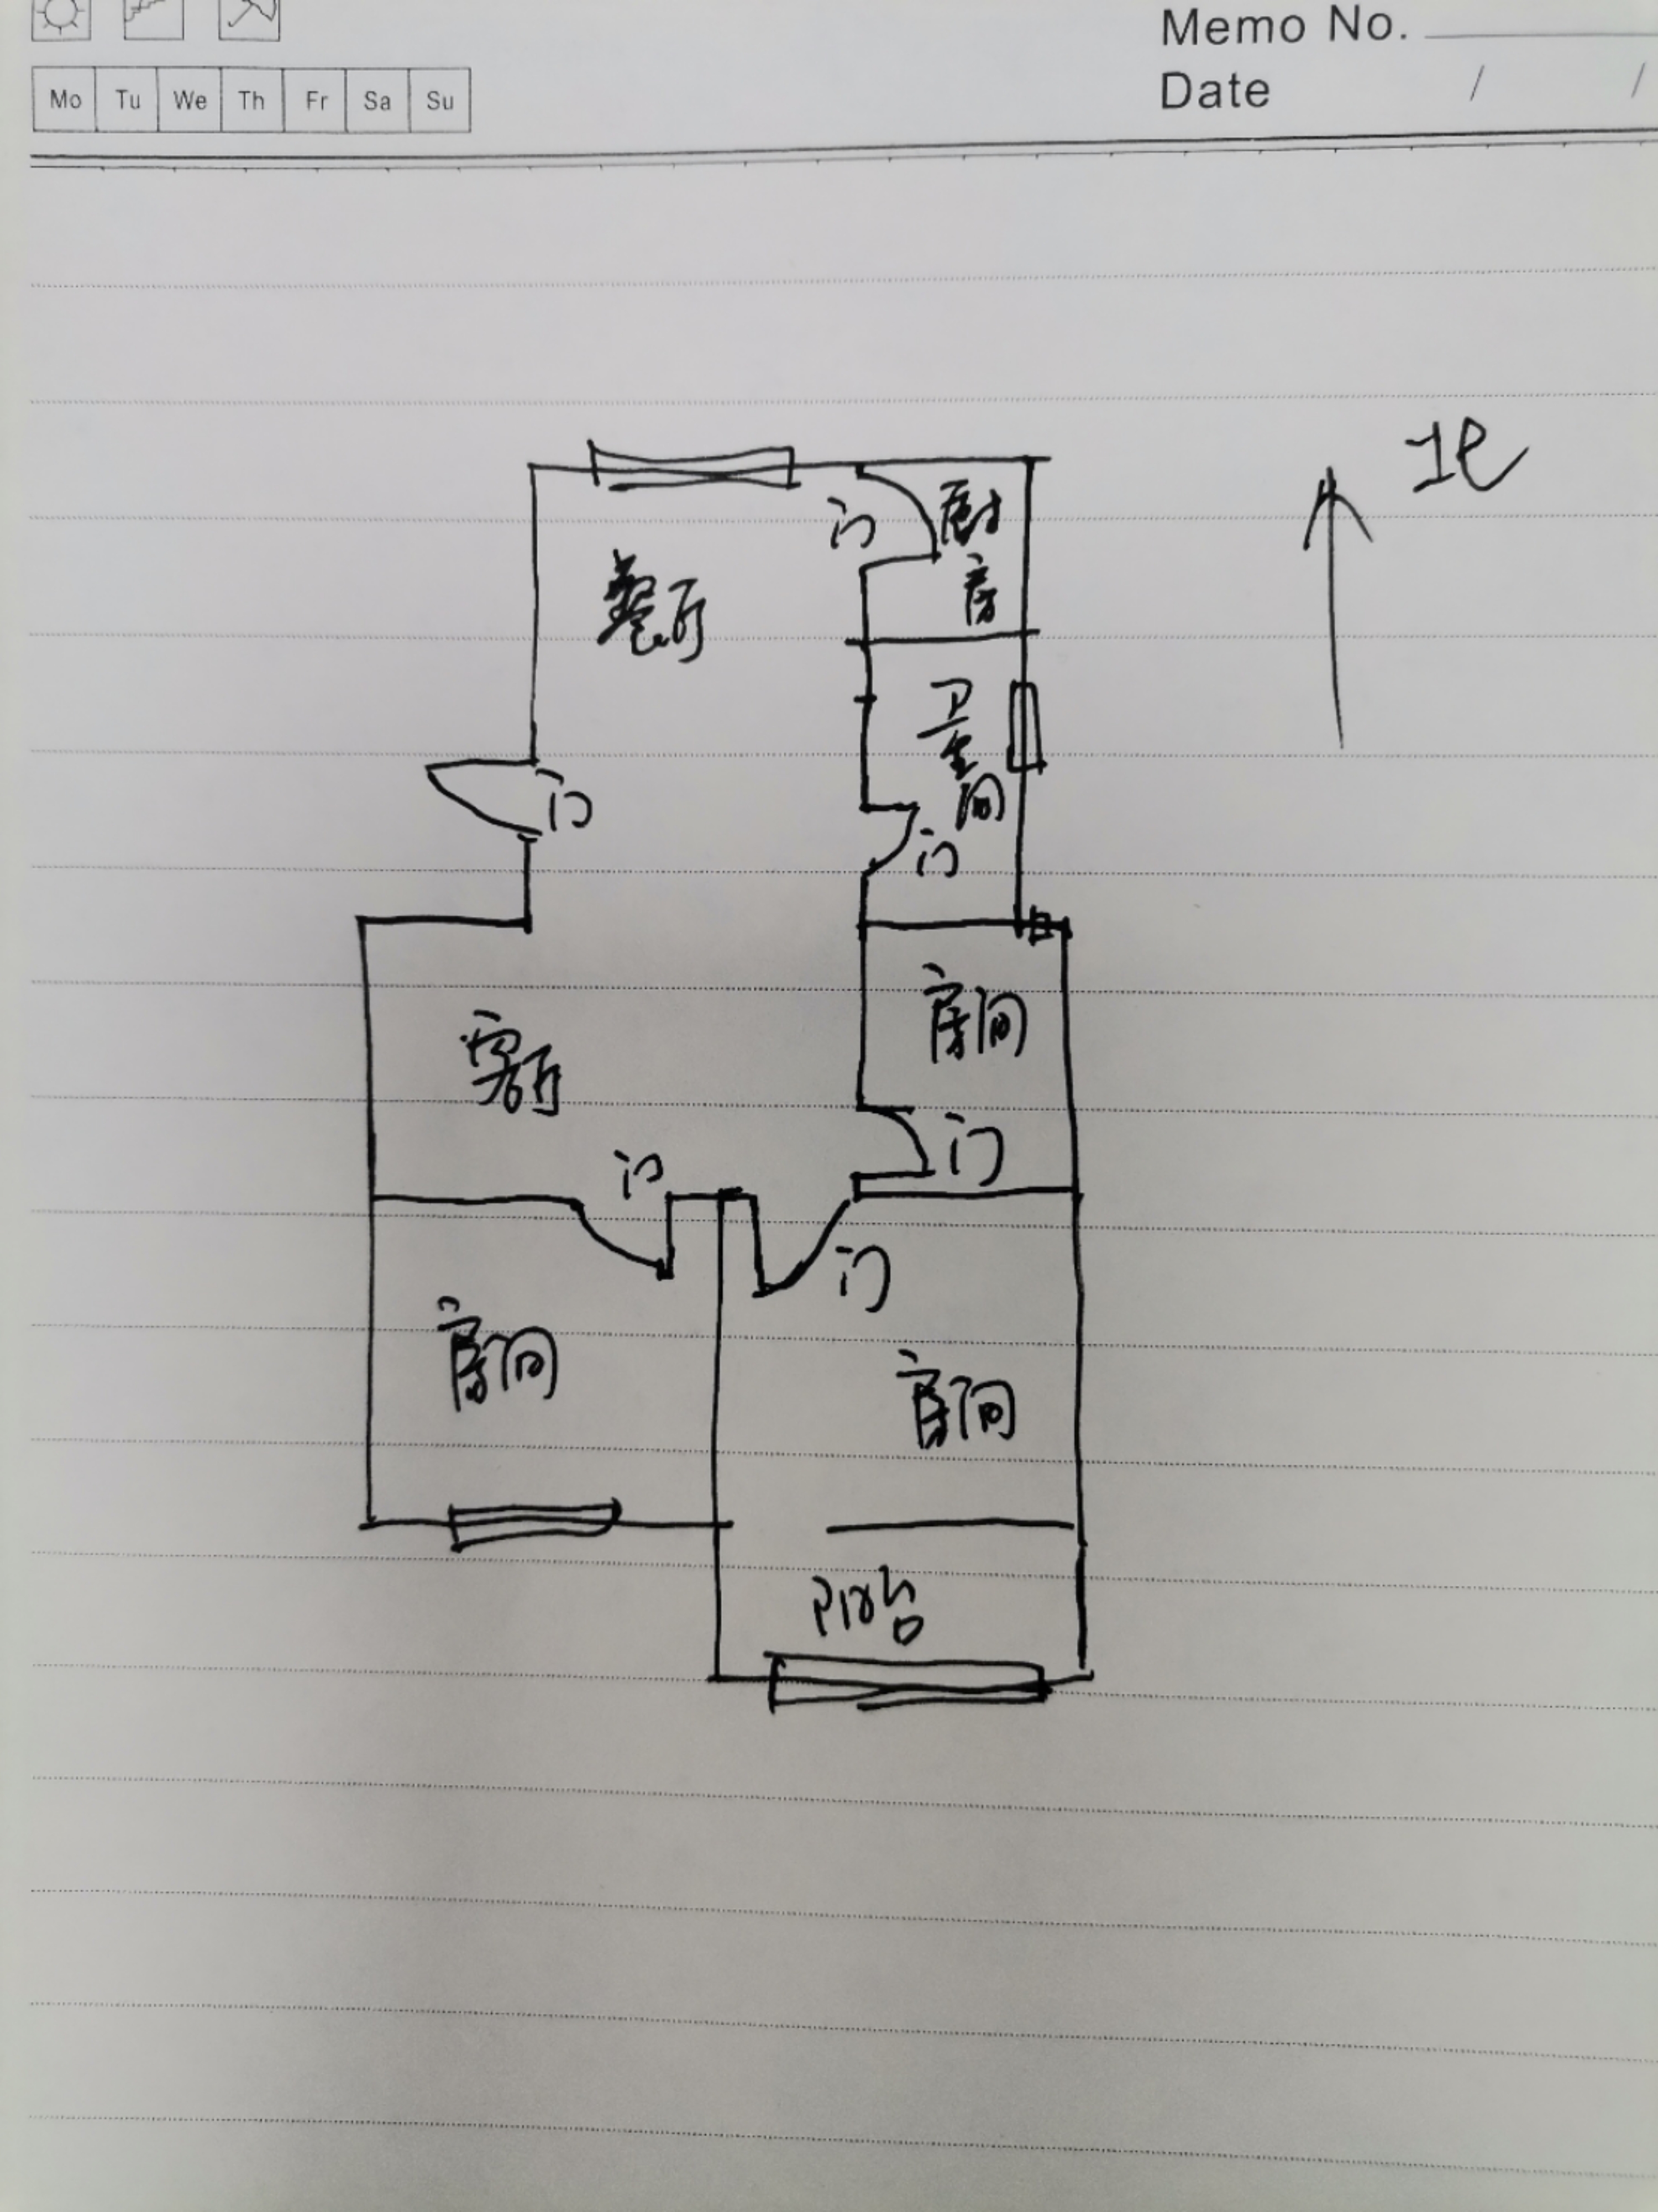 Memo No.
Date / /
Mo Tu We Th Fr Sa Su
北
门
厨
房
餐厅
卫
生
间
门
门
房间
客厅
门
门
门
房间
房间
阳台